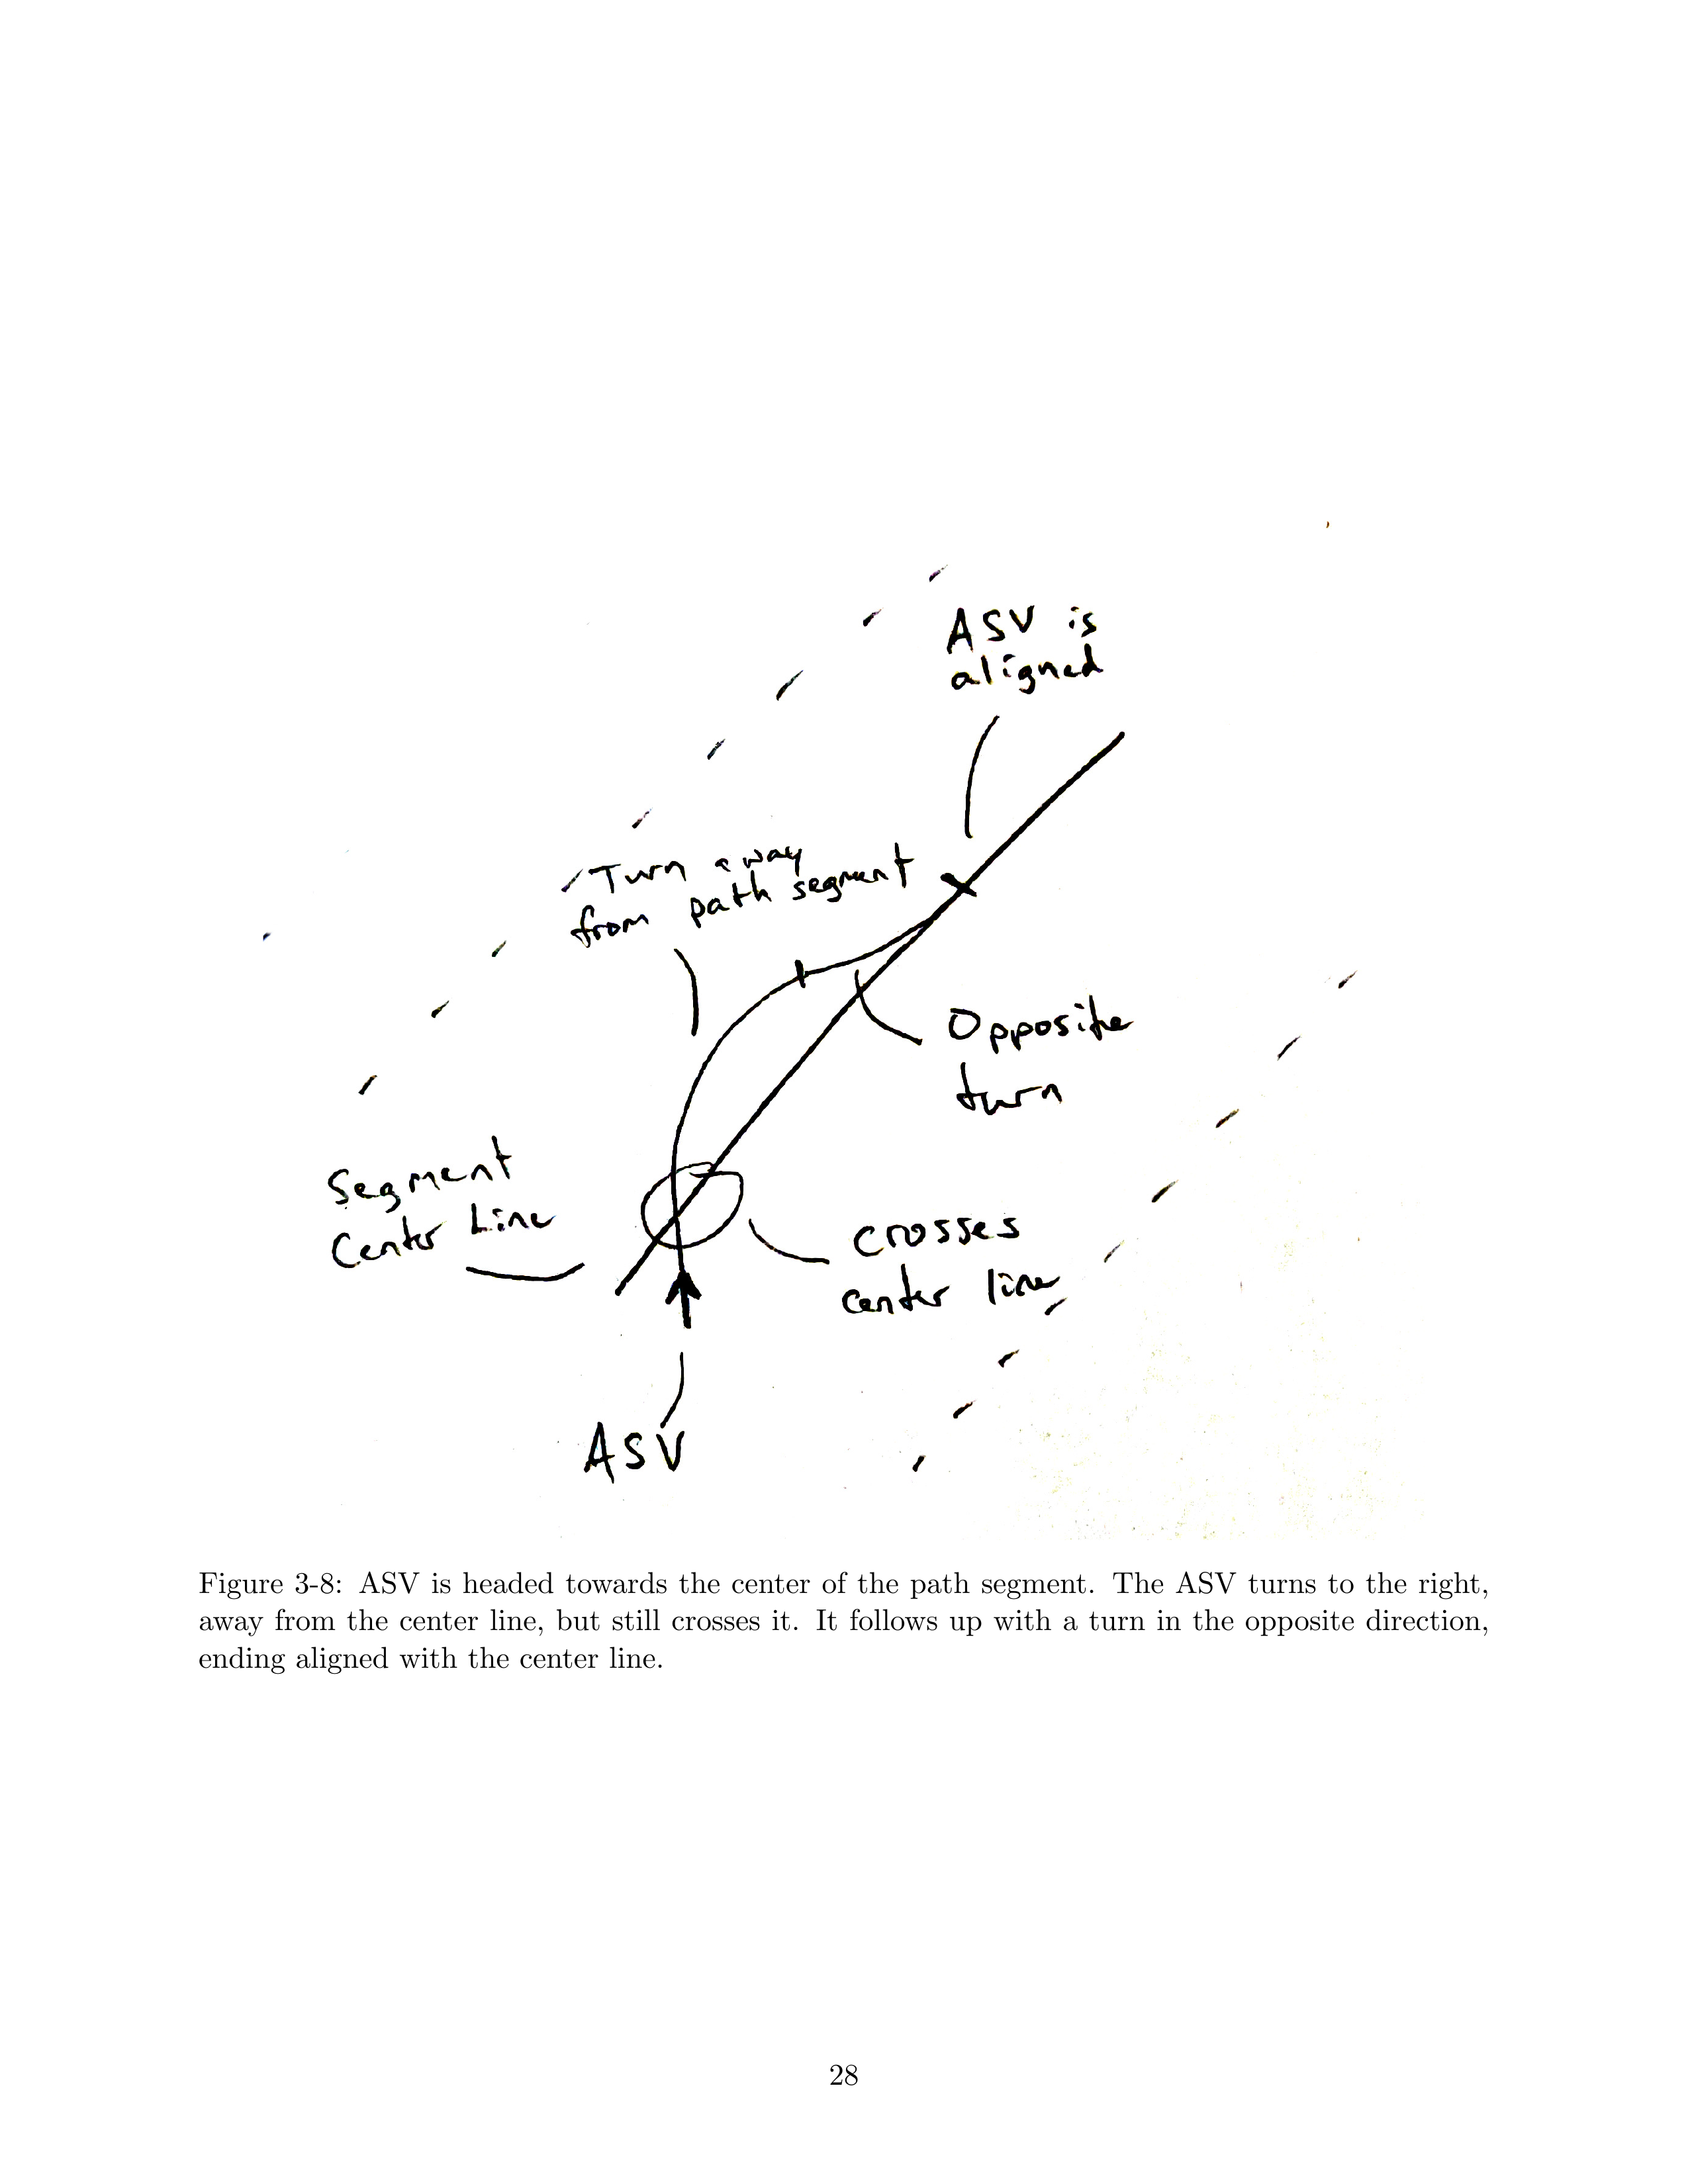 ASV is
aligned
Turn away
from path segment
Opposite
turn
Segment
Center Line
crosses
center line
ASV
Figure 3-8: ASV is headed towards the center of the path segment. The ASV turns to the right,
away from the center line, but still crosses it. It follows up with a turn in the opposite direction,
ending aligned with the center line.
28